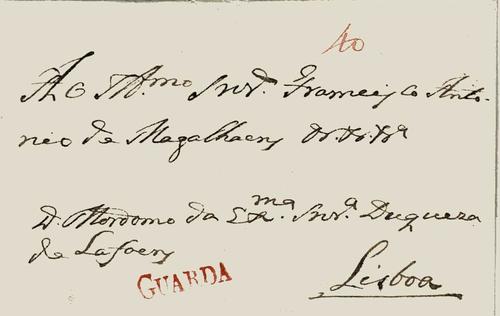 40
Ao Illmo Snr. Francisco Anto-
nio de Magalhaens
D. Mordomo da Exma. Snra. Duqueza
de Lafoens
GUARDA
Lisboa